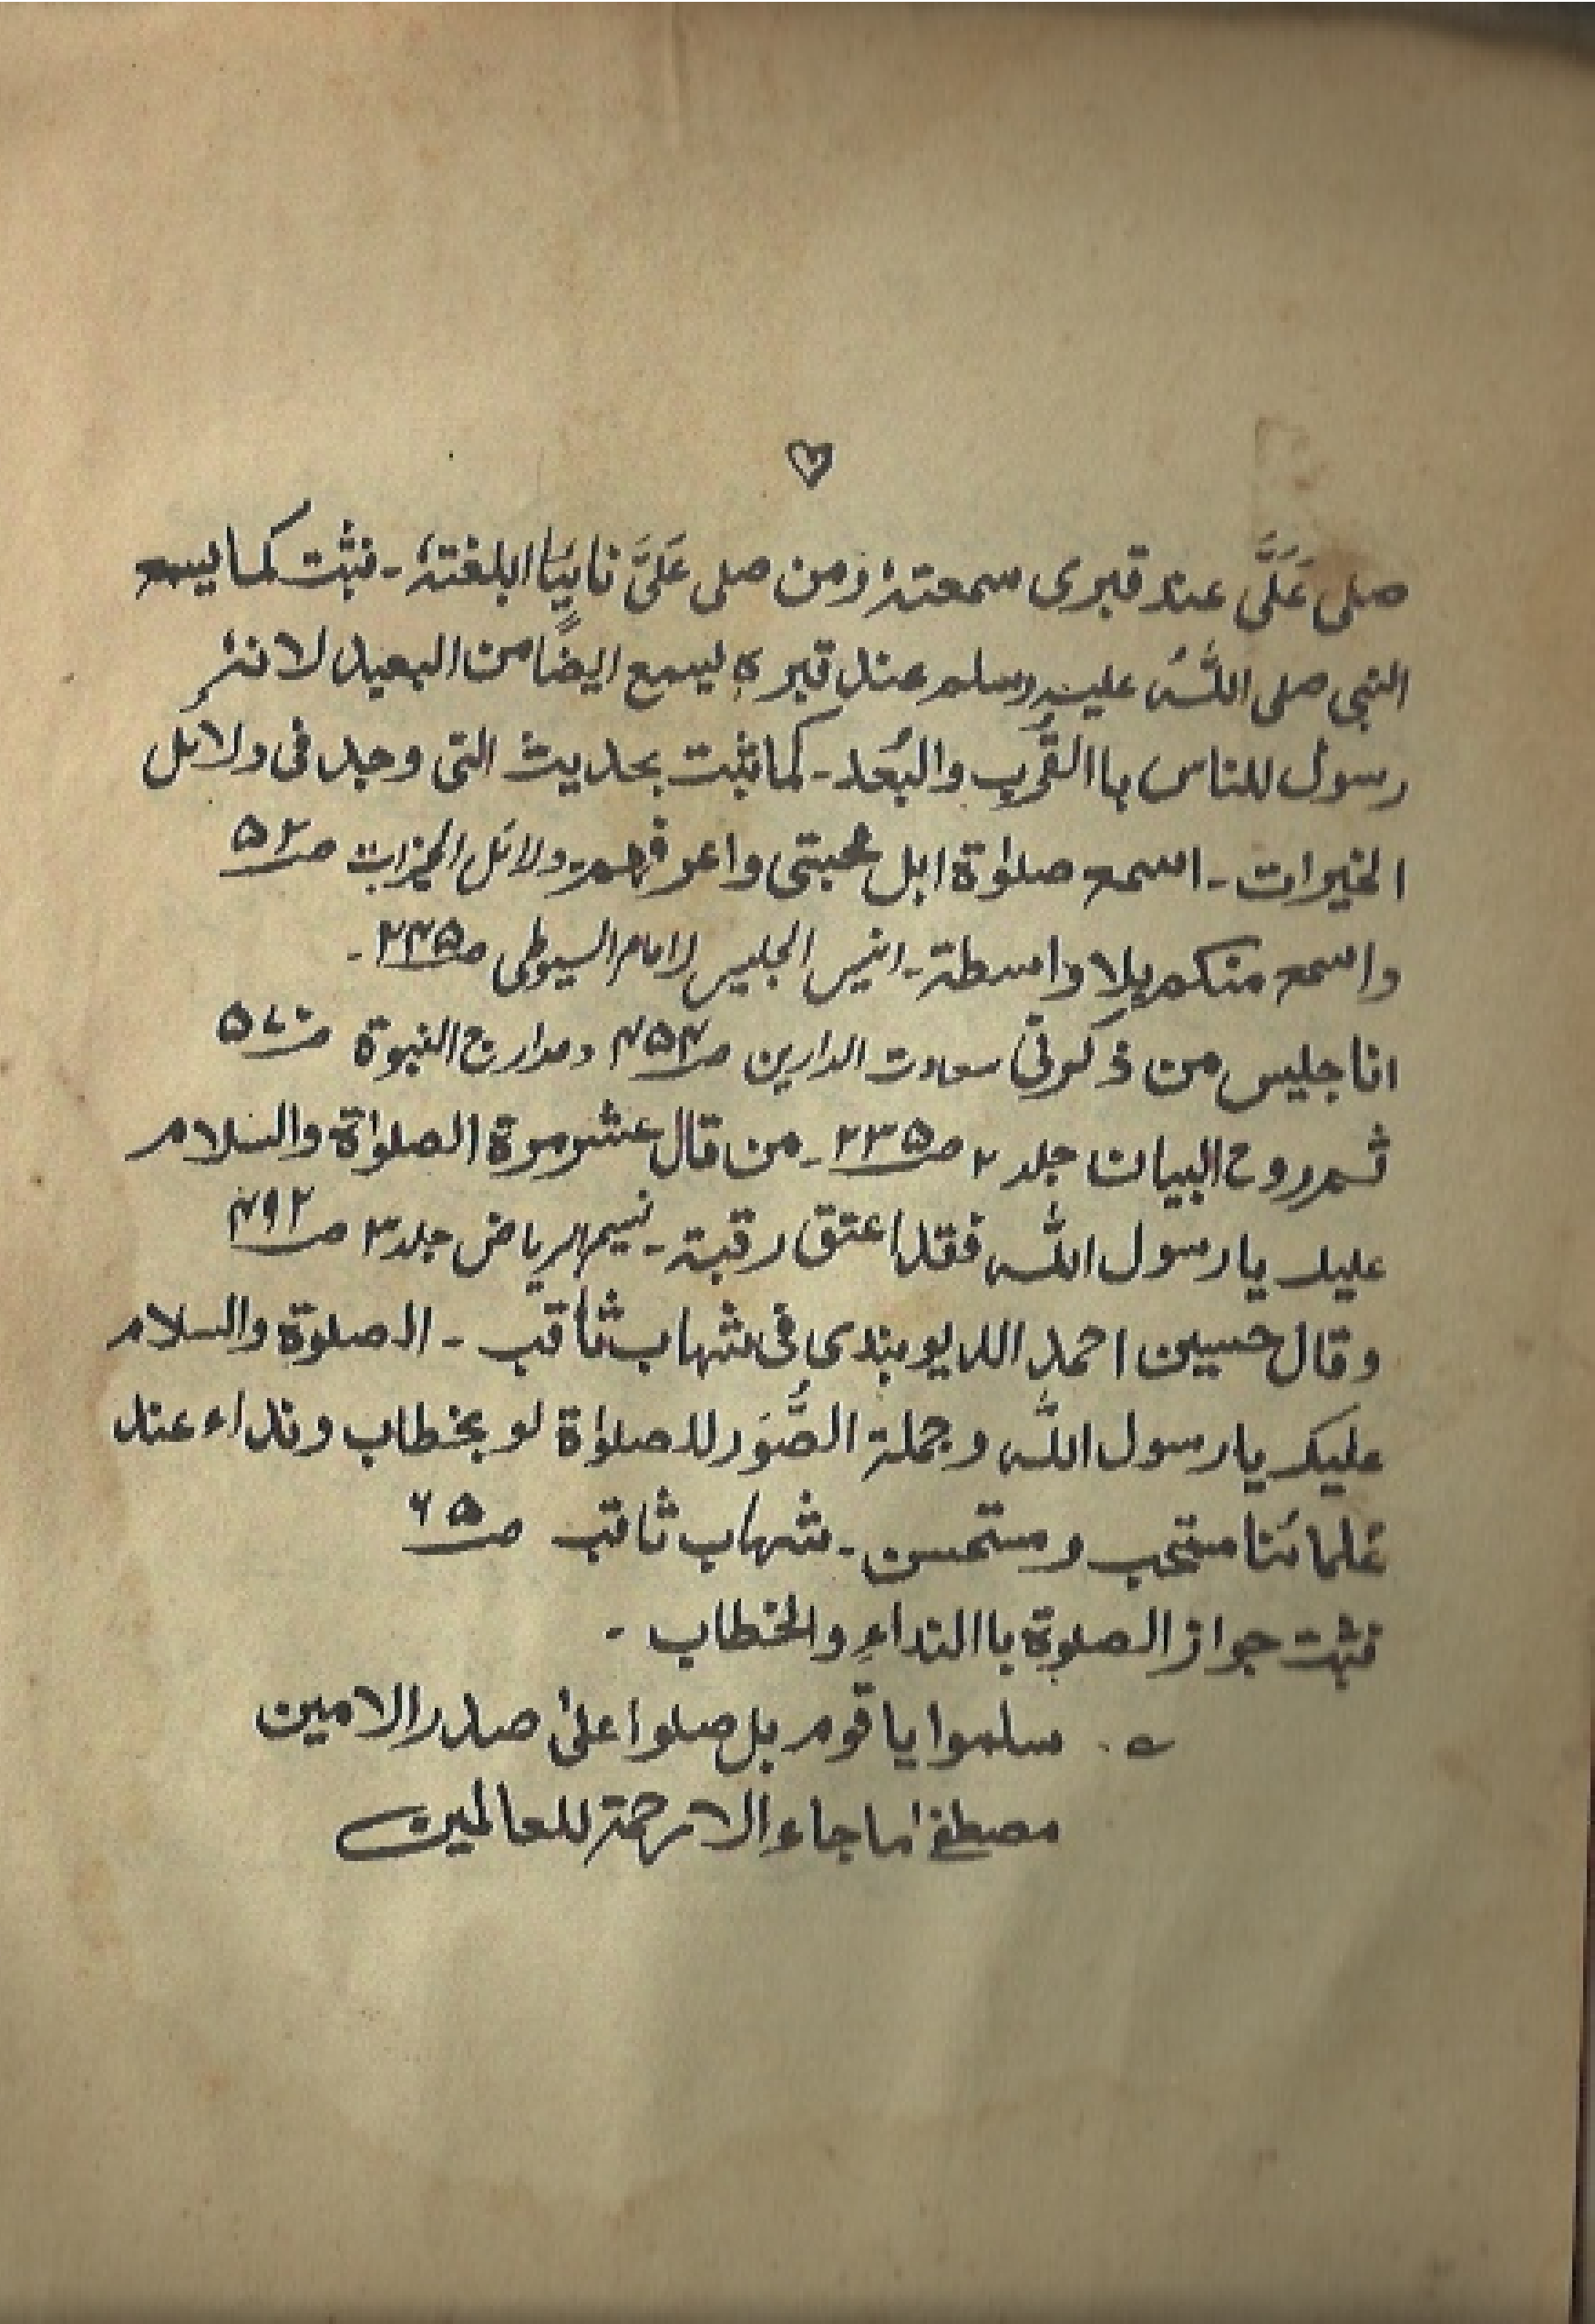 صلى عَلَّى عند قبرى سمعتهٗ ومن صلى عَلَىَّ نايئًا ابلغتهٗ ـ نثبت كما يسمع
النبى صلى اللهُ عليه وسلم عند قبره ليسمع ايضًا من البعيد لانهٗ
رسول للناس باالقُرب والبُعد ـ كما ثبت بحديث التى وجد فى دلائل
الخيرات ـ اسمع صلوٰة اهل محبتى واعرفهم دلائل الخيرات صـ ۵۲
واسمع منكم بلا واسطة ـ انيس الجليس لامام السيوطى صـ ۲۳۵ ـ
انا جليس من ذكرنى سعادت الدارين صـ ۴۵۴ ومدارج النبوة صـ ۵۷۰
ثم روح البيان جلد ۲ صـ ۲۳۵ ـ من قال عشر مرة الصلوٰة والسلام
عليك يا رسول الله فقد اعتق رقبة ـ نسيم الرياض جلد ۳ صـ ۴۹۲
وقال حسين احمد الديوبندى فى شهاب ثاقب ـ الصلوة والسلام
عليك يا رسول الله وجملة الصُّوَر للصلوٰة لو بخطاب ونداء عند
علمائنا مستحب ومستحسن ـ شهاب ثاقب صـ ۶۵
نثبت جواز الصلوة باالنداءِ والخطاب ـ
سلموا يا قوم بل صلوا علىٰ صدر الامين
مصطفےٰ ما جاء الا رحمة للعالمين